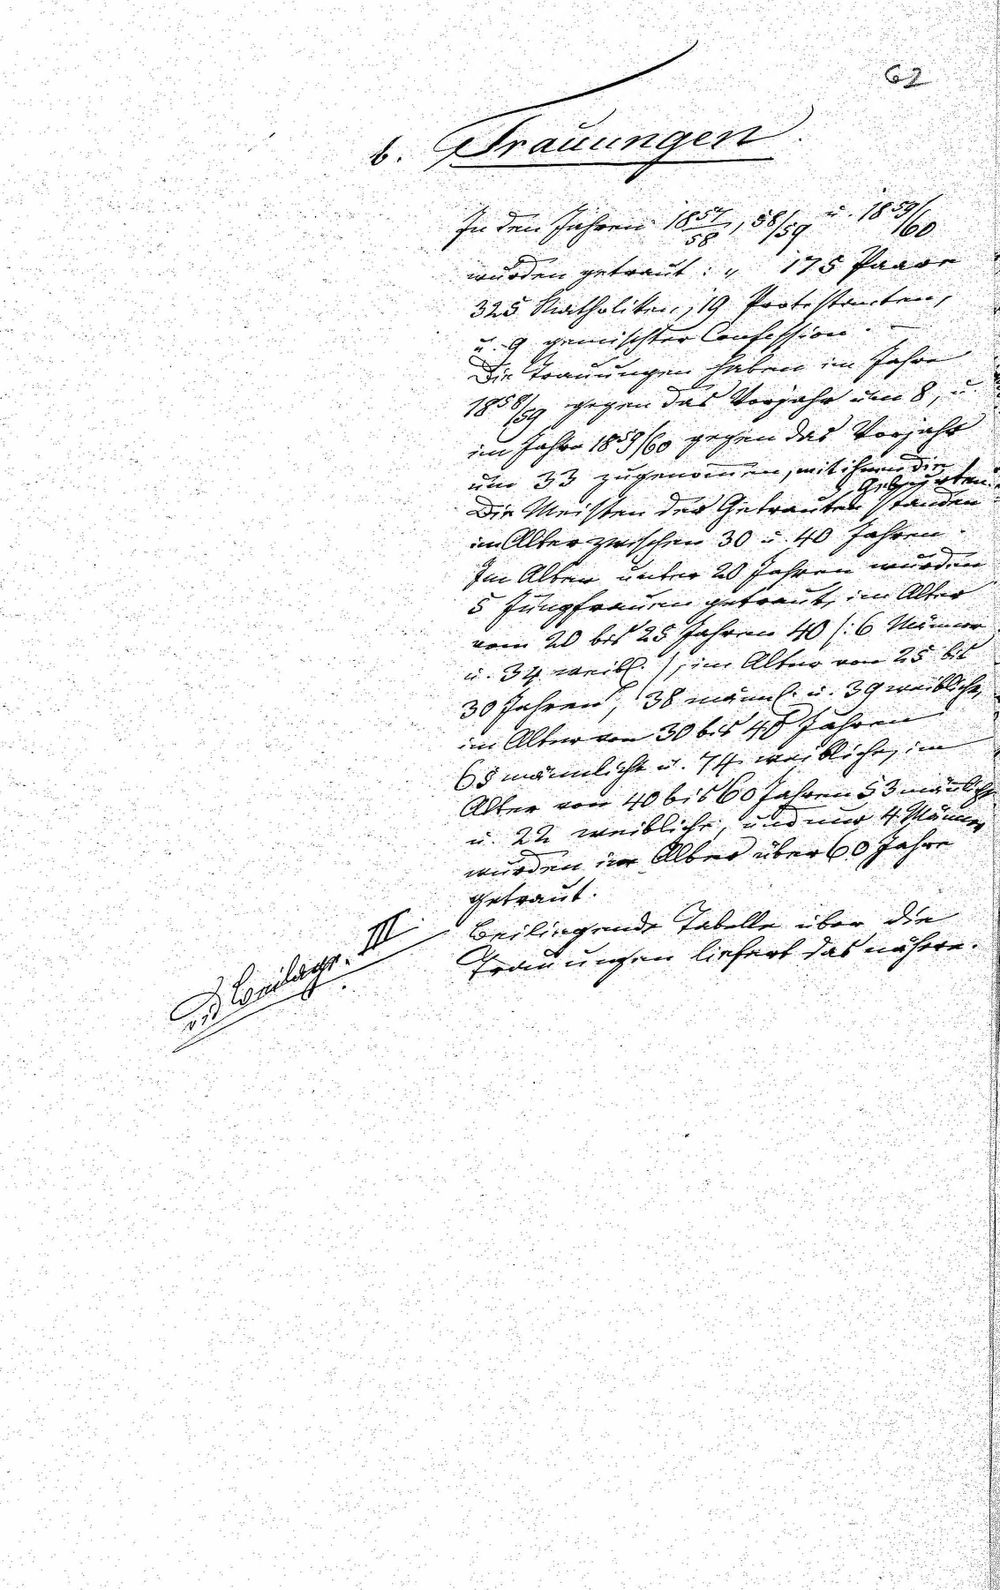 62
b. Trauungen.
In den Jahren 1857/58, 58/59 u. 1859/60
wurden getraut: " 175 Paare
325 Katholiken, 19 Protestanten,
u. 9 gemischter Confession. —
Die Trauungen haben im Jahre
1858/59 gegen das Vorjahr um 8, u.
im Jahre 1859/60 gegen das Vorjahr
um 33 zugenommen, mit ihnen die
Geburten.
Die Meisten der Getrauten standen
im Alter zwischen 30 u. 40 Jahren.
Im Alter unter 20 Jahren wurden
5 Jungfrauen getraut, im Alter
vom 20 bis 25 Jahren 40 /: 6 Männer
u. 34 weibl. :/, im Alter von 25 bis
30 Jahren, 38 männl. u. 39 weibliche,
im Alter von 30 bis 40 Jahren
65 männliche u. 74 weibliche, im
Alter von 40 bis 60 Jahren 53 männliche
u. 22 weibliche, und nur 4 Männer
wurden im Alter über 60 Jahre
getraut.
Beiliegende Tabelle über die
Trauungen liefert das nähere.
vid Beilage III